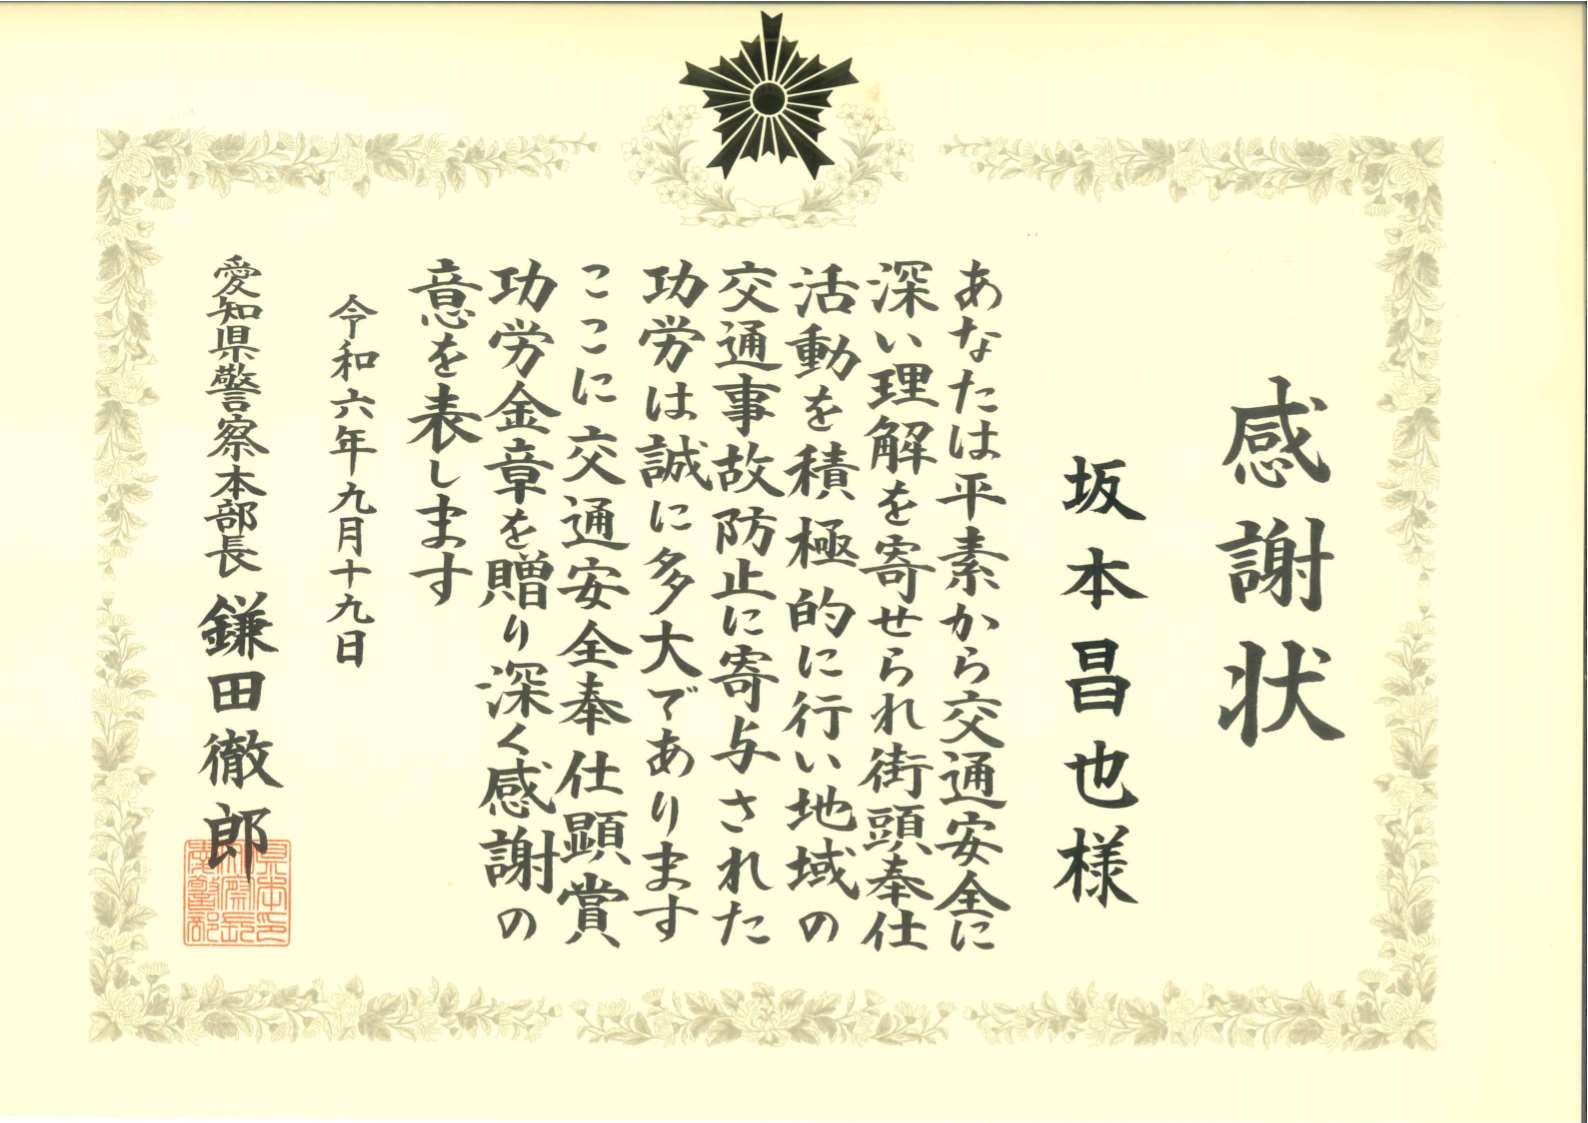 感謝状
坂本昌也様
あなたは平素から交通安全に
深い理解を寄せられ街頭奉仕
活動を積極的に行い地域の
交通事故防止に寄与された
功労は誠に多大であります
ここに交通安全奉仕顕賞
功労金章を贈り深く感謝の
意を表します
令和六年九月十九日
愛知県警察本部長 鎌田徹郎